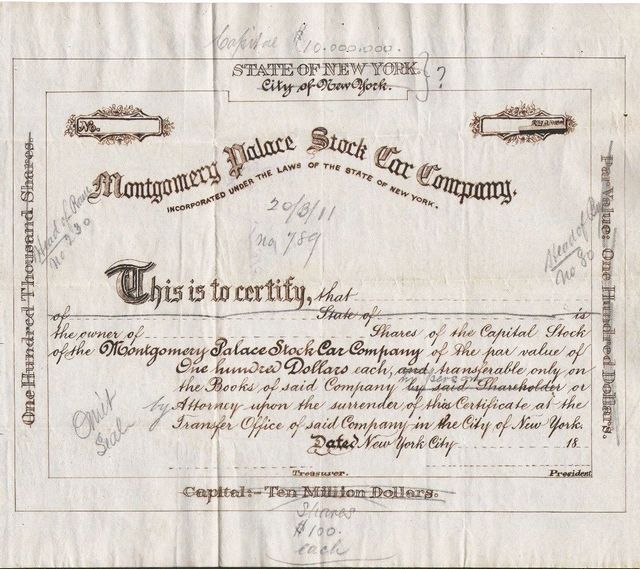 Capital $10.000.000.
STATE OF NEW YORK. } ?
City of New York.
No.
Montgomery Palace Stock Car Company.
INCORPORATED UNDER THE LAWS OF THE STATE OF NEW YORK.
20/3/11
No 789
One Hundred Thousand Shares.
Head of
No 230
Par Value: One Hundred Dollars.
Head of
No 80
This is to certify, that
of State of is
the owner of Shares of the Capital Stock
of the Montgomery Palace Stock Car Company of the par value of
One hundred Dollars each, and transferable only on
the Books of said Company by said Shareholder or
in person
by Attorney upon the surrender of this Certificate at the
Transfer Office of said Company in the City of New York.
Omit
Seal
Dated New York City 18
Treasurer. President.
Capital:- Ten Million Dollars.
Shares
$100.
each